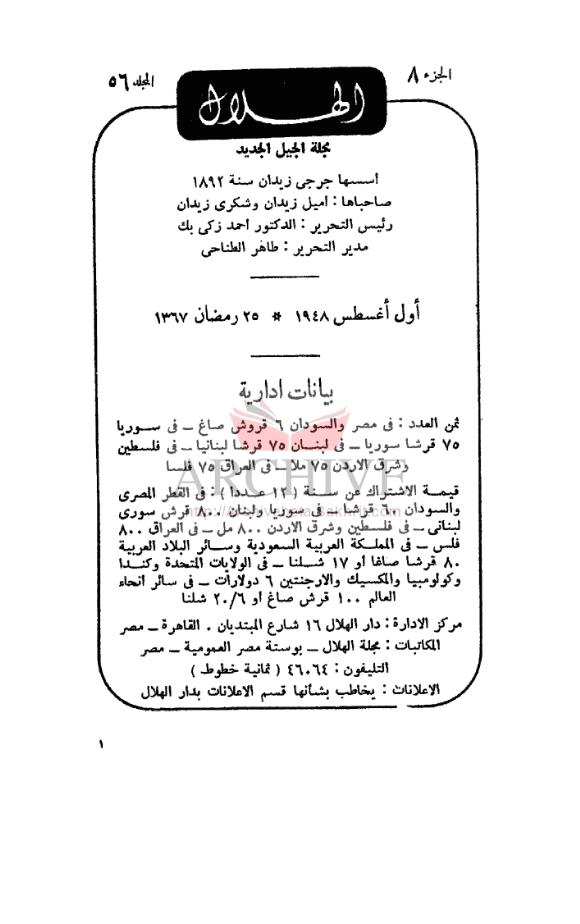 الجزء ٨
المجلد ٥٦
الهلال
مجلة الجيل الجديد
أسسها جرجى زيدان سنة ١٨٩٢
صاحباها : اميل زيدان وشكرى زيدان
رئيس التحرير : الدكتور احمد زكى بك
مدير التحرير : طاهر الطناحى
أول أغسطس ١٩٤٨ * ٢٥ رمضان ١٣٦٧
بيانات ادارية
ثمن العدد : فى مصر والسودان ٦ قروش صاغ ــ فى سوريا
٧٥ قرشا سوريا ــ فى لبنان ٧٥ قرشا لبنانيا ــ فى فلسطين
وشرق الاردن ٧٥ ملا ــ فى العراق ٧٥ فلسا
ARCHIVE
قيمة الاشتراك عن سنة ( ١٢ عددا ) : فى القطر المصرى
والسودان ٦٠ قرشا ــ فى سوريا ولبنان ٨٠٠ قرش سورى
لبنانى ــ فى فلسطين وشرق الاردن ٨٠٠ مل ــ فى العراق ٨٠٠
فلس ــ فى المملكة العربية السعودية وسائر البلاد العربية
٨٠ قرشا صاغا أو ١٧ شلنا ــ فى الولايات المتحدة وكندا
وكولومبيا والمكسيك والارجنتين ٦ دولارات ــ فى سائر انحاء
العالم ١٠٠ قرش صاغ او ٢٠/٦ شلنا
مركز الادارة : دار الهلال ١٦ شارع المبتديان . القاهرة ــ مصر
المكاتبات : مجلة الهلال ــ بوستة مصر العمومية ــ مصر
التليفون : ٤٦٠٦٤ ( ثمانية خطوط )
الاعلانات : يخاطب بشأنها قسم الاعلانات بدار الهلال
١